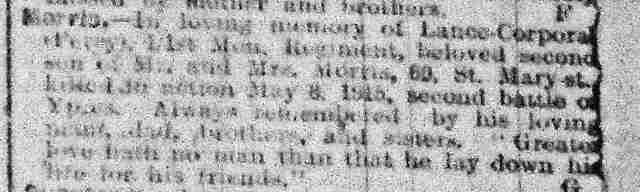 mother and brothers.
F
Morris.—In loving memory of Lance-Corporal
(Percy), 1st Mon. Regiment, beloved second
son of Mr. and Mrs. Morris, 69, St. Mary-st.,
killed in action May 8, 1915, second battle of
Ypres. Always remembered by his loving
mam, dad, brothers, and sisters. "Greater
love hath no man than that he lay down his
life for his friends."
G